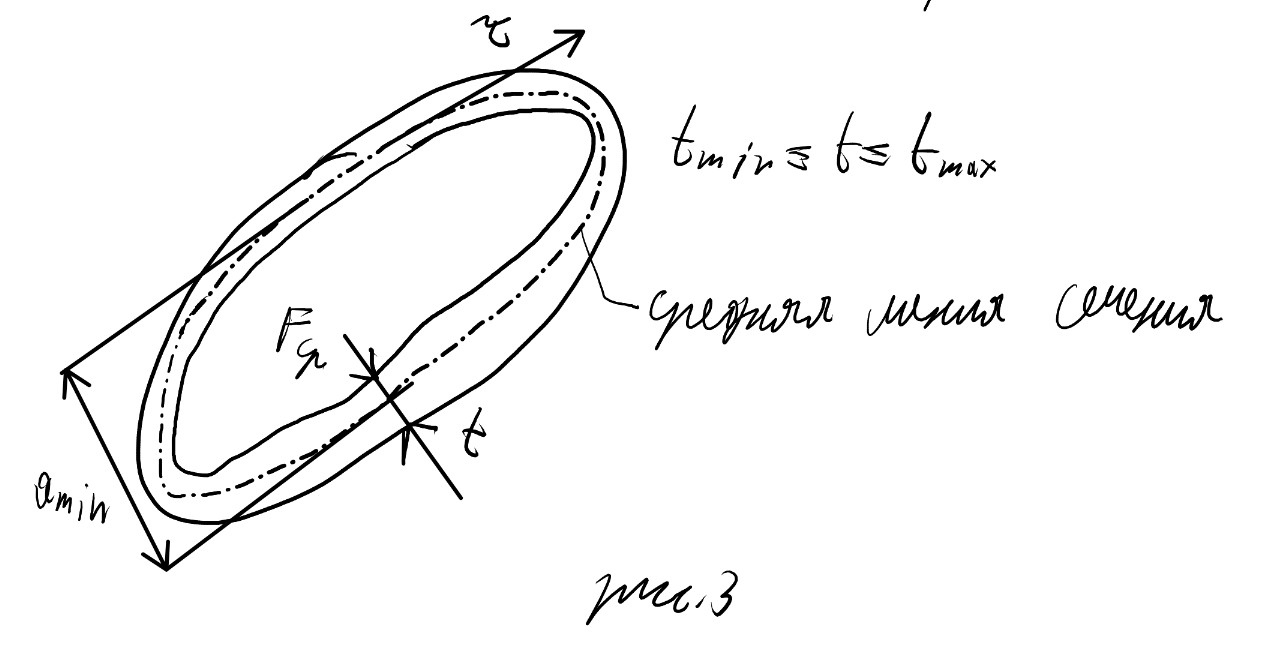 τ
t min ≤ t ≤ t max
F ср
средняя линия сечения
t
a min
рис.3